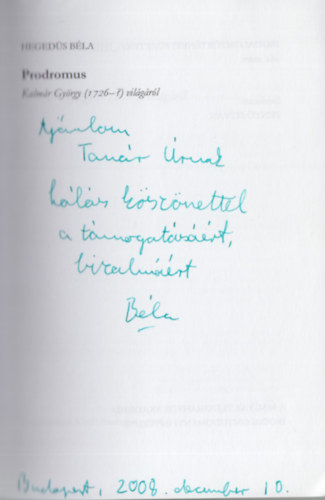 HEGEDŰS BÉLA
Prodromus
Kalmár György (1726–?) világáról
Ajánlom
Tanár Úrnak
hálás köszönettel
a támogatásáért,
bizalmáért
Béla
Budapest, 2008. december 10.